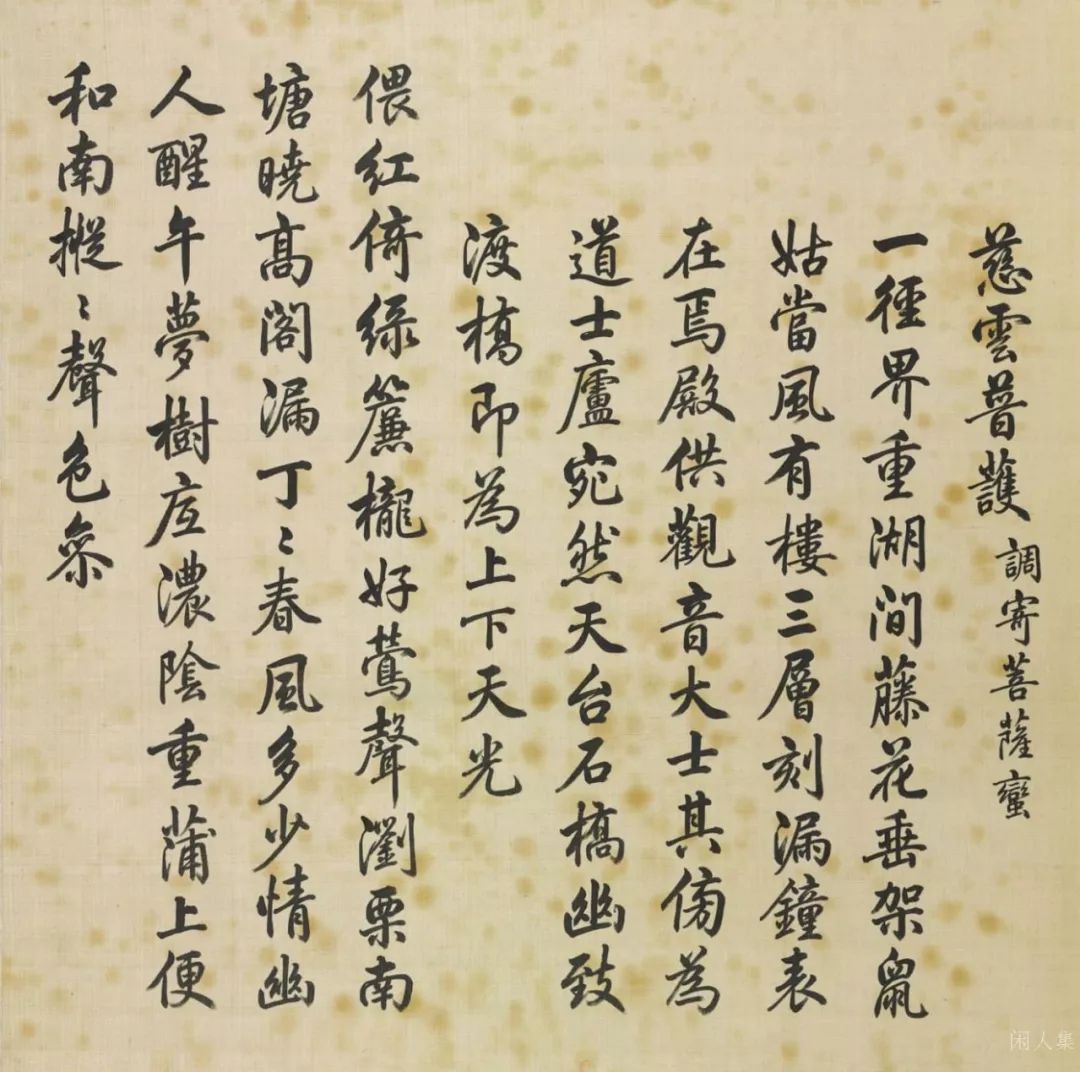 慈雲普護 調寄菩薩蠻
一徑界重湖間藤花垂架鼠
姑當風有樓三層刻漏鐘表
在焉殿供觀音大士其傍為
道士廬宛然天台石橋幽致
渡橋即為上下天光
偎紅倚綠簾櫳好鶯聲瀏栗南
塘曉高閣漏丁〻春風多少情幽
人醒午夢樹底濃陰重蒲上便
和南摐〻聲色參
闲人集